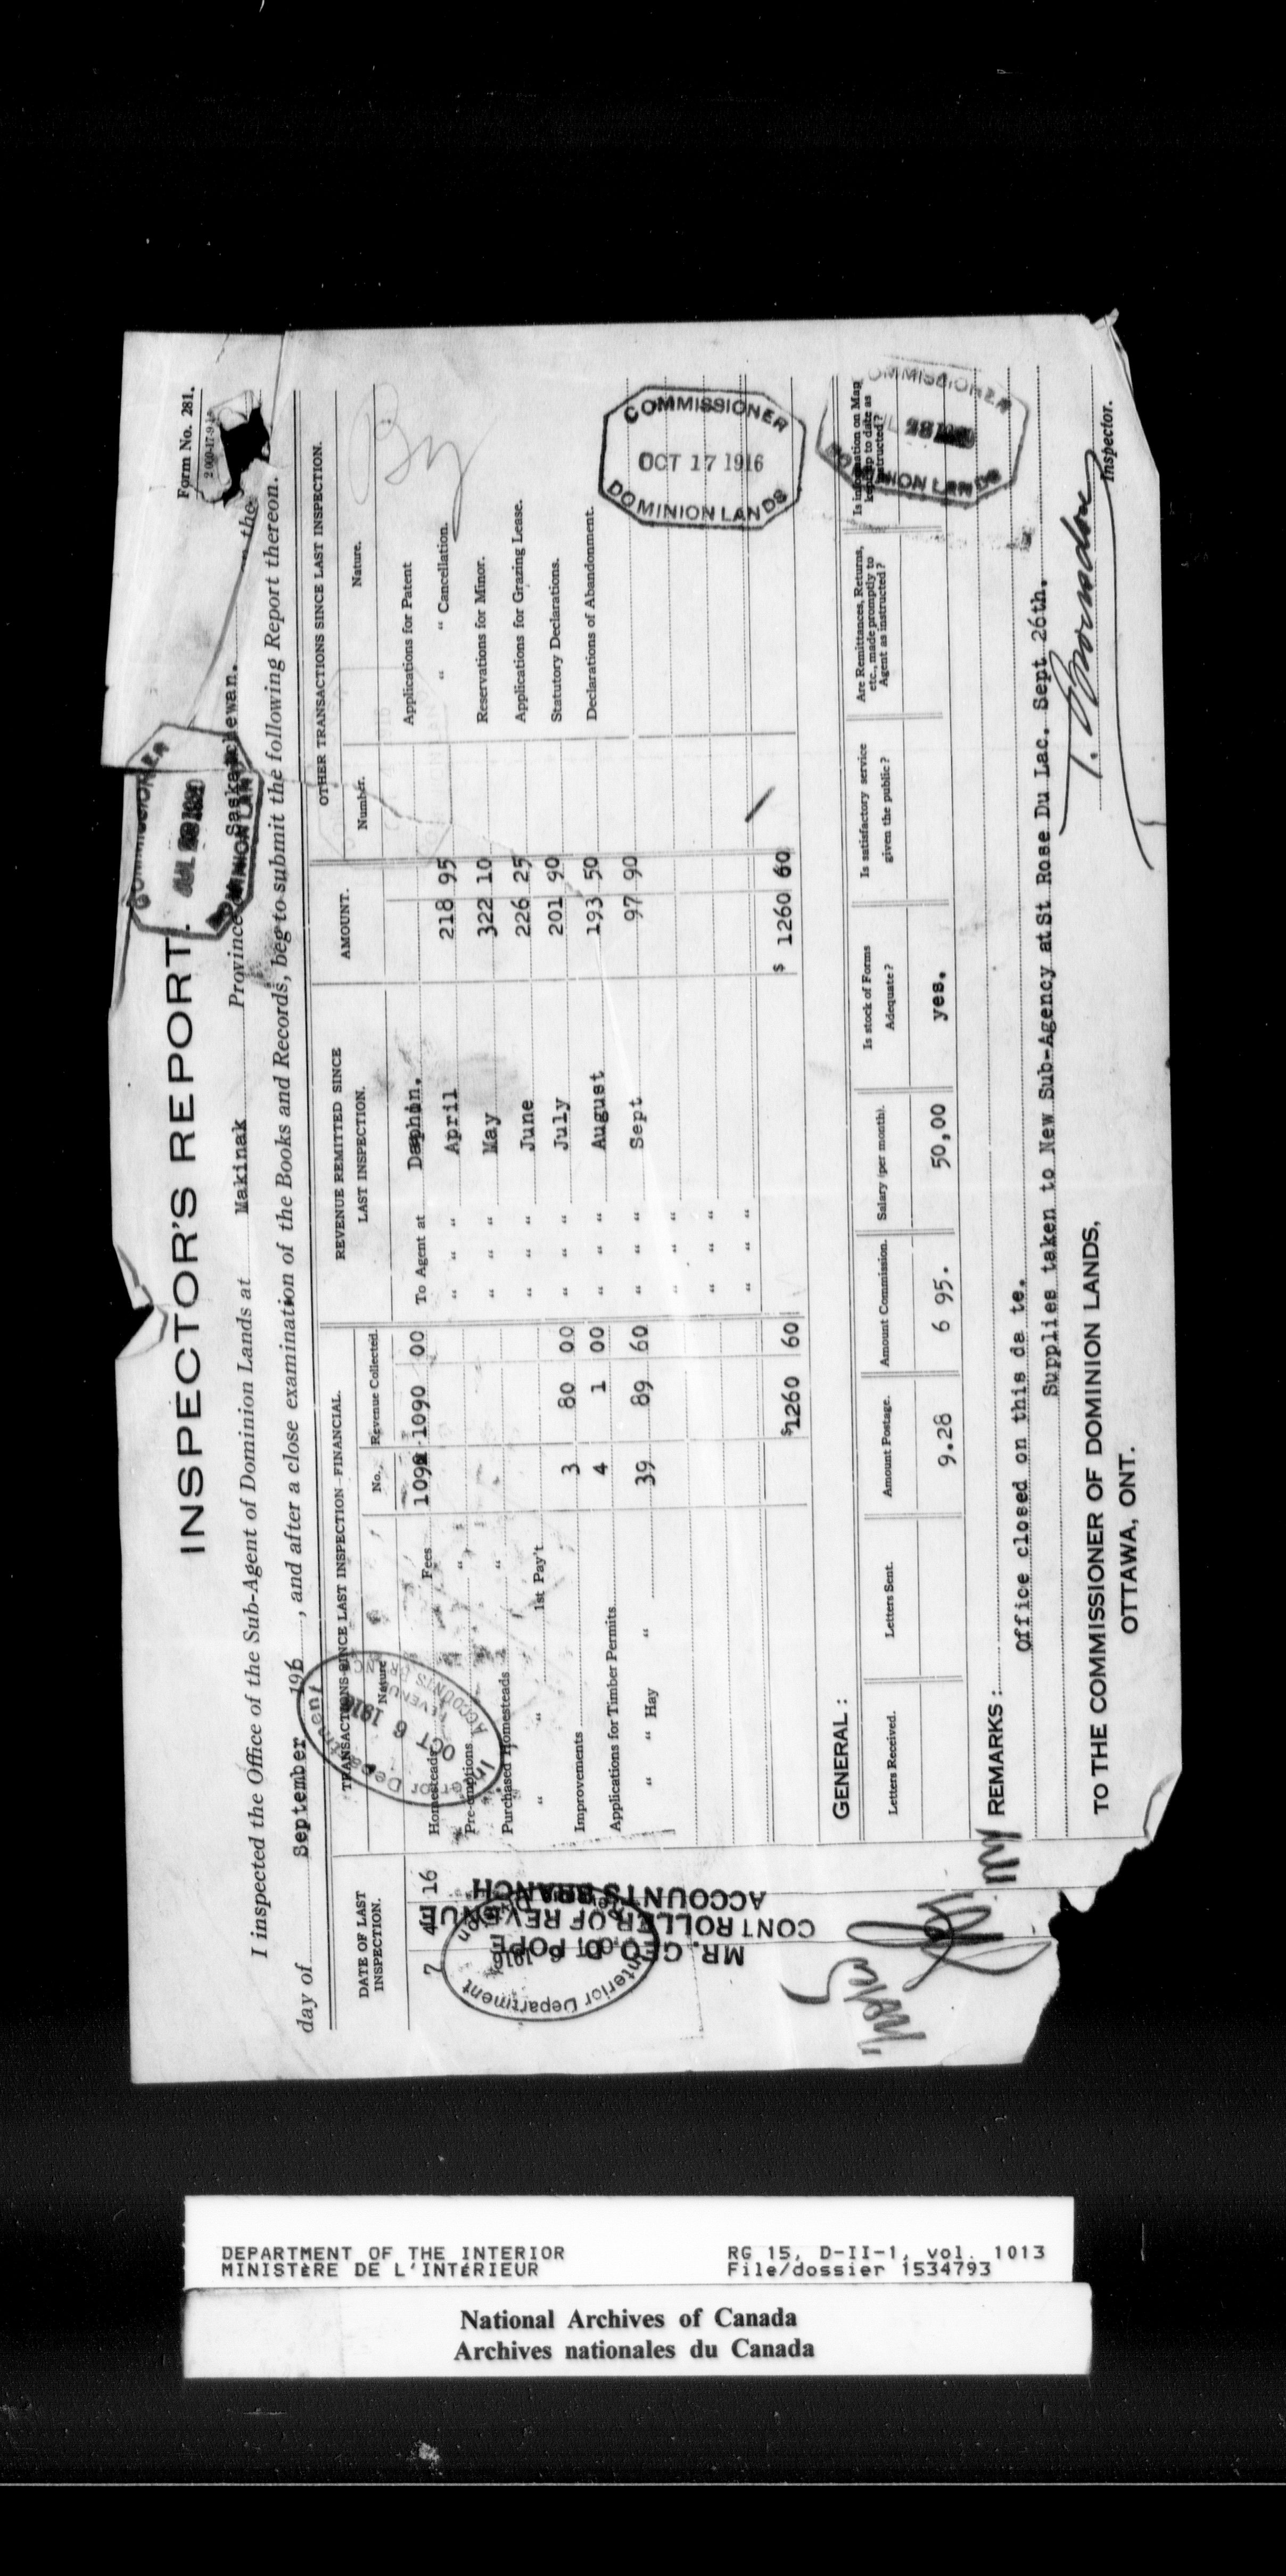 Form No. 281.
INSPECTOR'S REPORT.
COMMISSIONER
DOMINION LANDS
I inspected the Office of the Sub-Agent of Dominion Lands at Makinak Province Saskatchewan. the
day of September 196, and after a close examination of the Books and Records, beg to submit the following Report thereon.
DATE OF LAST INSPECTION.
7 4 16
TRANSACTIONS SINCE LAST INSPECTION—FINANCIAL.
Nature No. Revenue Collected.
Homesteads Fees 1090 00
Pre-emptions "
Purchased Homesteads "
" " 1st Pay't
Improvements 3 80 00
Applications for Timber Permits 4 1 00
" " Hay " 39 89 60
$1260 60
REVENUE REMITTED SINCE LAST INSPECTION.
AMOUNT.
To Agent at
" " " April 218 95
" " " May 322 10
" " " June 226 25
" " " July 201 90
" " " August 193 50
" " " Sept 97 90
" " "
" " "
" " "
$ 1260 60
OTHER TRANSACTIONS SINCE LAST INSPECTION.
Number. Nature.
Applications for Patent
" " Cancellation.
Reservations for Minor.
Applications for Grazing Lease.
Statutory Declarations.
Declarations of Abandonment.
COMMISSIONER
OCT 17 1916
DOMINION LANDS
Interior Department
OCT 6 1916
REVENUE
ACCOUNTS BRANCH
MR. GEO. D. POPE
CONTROLLER OF REVENUE
ACCOUNTS BRANCH
Interior Department
GENERAL:
Letters Received.
Letters Sent.
Amount Postage. 9.28
Amount Commission. 6 95.
Salary (per month). 50,00
Is stock of Forms Adequate? yes.
Is satisfactory service given the public?
Are Remittances, Returns, etc., made promptly to Agent as instructed?
Is information on Map kept up to date as instructed?
COMMISSIONER
DOMINION LANDS
REMARKS:
Office closed on this da te.
Supplies taken to New Sub-Agency at St. Rose Du Lac. Sept 26th.
TO THE COMMISSIONER OF DOMINION LANDS,
OTTAWA, ONT.
Inspector.
DEPARTMENT OF THE INTERIOR
MINISTÈRE DE L'INTÉRIEUR
RG 15, D-II-1, vol. 1013
File/dossier 1534793
National Archives of Canada
Archives nationales du Canada